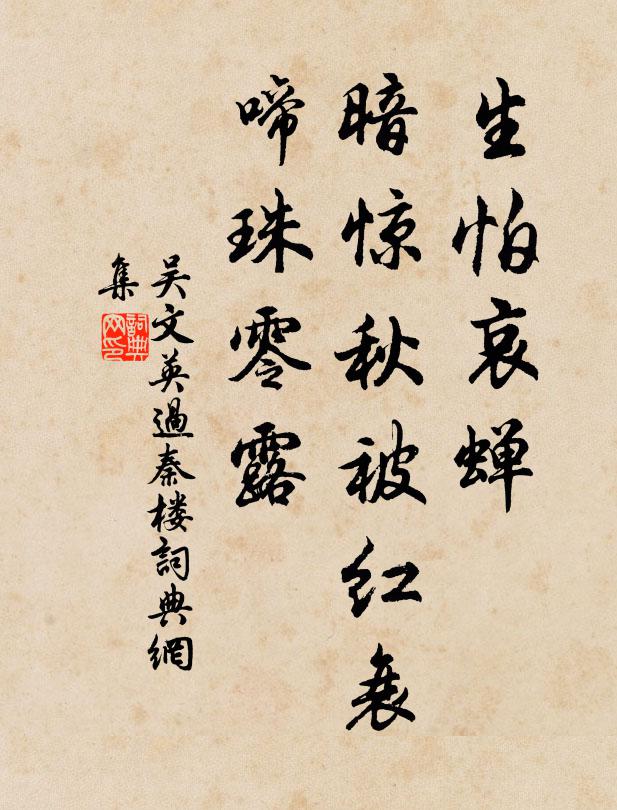 生怕哀蝉
暗惊秋被红衰
啼珠零露
吴文英過秦楼詞典網
集
詞典
网印